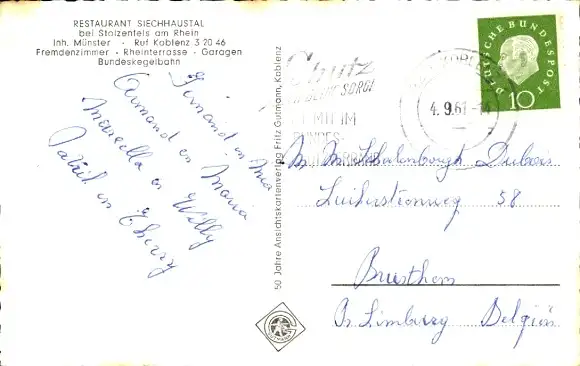 RESTAURANT SIECHHAUSTAL
bei Stolzenfels am Rhein
Inh. Münster · Ruf Koblenz 3 20 46
Fremdenzimmer · Rheinterrasse · Garagen
Bundeskegelbahn
Fernand en
Armand en Maria
Marcella en Willy
en Thierry
50 Jahre Ansichtskartenverlag Fritz Gutmann, Koblenz
Schutz
4.9.61-14
IM
BUNDES-
DEUTSCHE BUNDESPOST
10
Dubois
58
Brusthem
Pr. Limburg Belgiën